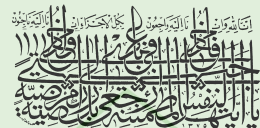 إنا لله وإنا إليه راجعون
يا أيتها النفس المطمئنة ارجعي إلى ربك راضية مرضية
فادخلي في عبادي
وادخلي جنتي